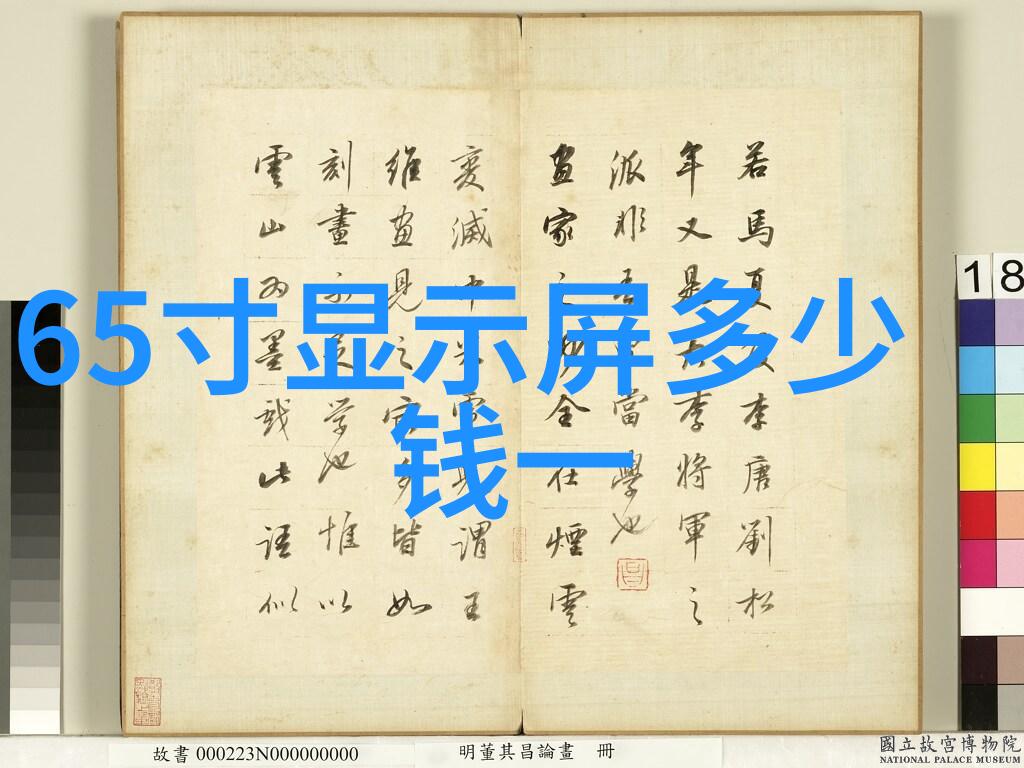 65寸显示屏多少
钱一
若馬夏及李唐劉松
年又是大李將軍之
派非吾曹當學也
畫家之妙全在煙雲
變滅中米 謂王
維畫見之 多皆如
刻畫不足學也惟以
雲山為墨戲此語似
故書 000223N000000000
明董其昌論畫 冊
18
國立故宮博物院
NATIONAL PALACE MUSEUM